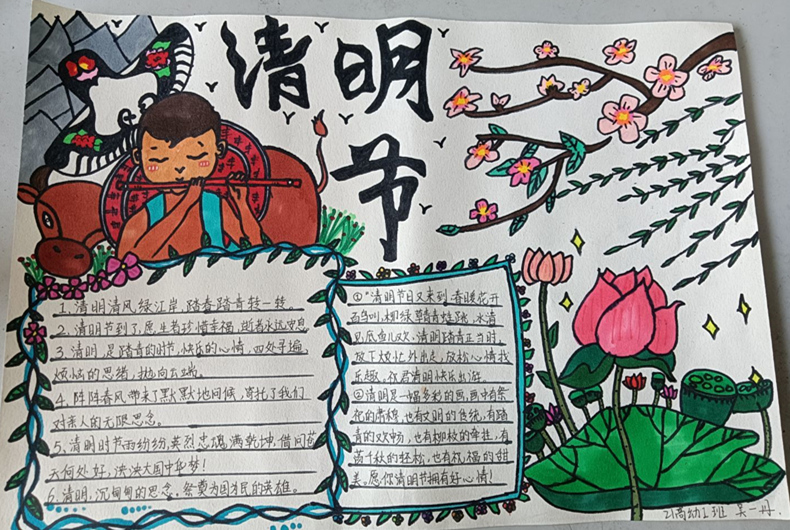 清明
节
1.清明清风绿江岸,踏春踏青转一转。
2.清明节到了,愿生者珍惜幸福,逝者永远安息
3.清明,是踏青的时节,快乐的心情,四处寻遍,
烦恼的思绪,抛向云端。
4.阵阵春风带来了默默地问候,寄托了我们
对亲人的无限思念。
5、清明时节雨纷纷,英烈忠魂满乾坤,借问
天何处好,泱泱大国中华梦!
6.清明,沉甸甸的思念,祭奠为国为民的英雄。
①"清明节日又来到,春暖花开
鸟叫,柳绿草青娃跳,水清
见底鱼儿欢,清明踏青正当时,
放下烦忙外出走,放松心情找
乐趣,祝君清明快乐出游。
②清明是一幅多彩的画,画中有祭
祀的肃穆,也有文明的传统,有踏
青的欢畅,也有柳枝的牵挂,有
荡千秋的轻松,也有祝福的甜
美,愿你清明节拥有好心情!
21高幼1班 吴一丹.